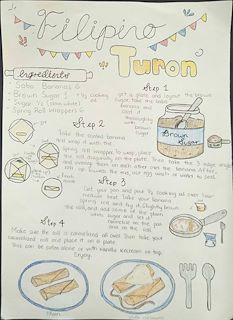 Filipino
Turon
Ingredients
- Saba Bananas 6
- Brown Sugar 1 ½
- Sugar ½ (also white)
- Spring Roll Wrappers 6
cooking oil
Step 1
get a plate and layout the brown
sugar, take the saba
banana and
coat it
with
brown
sugar
Brown
Sugar
Step 2
Take the coated banana
and wrap it with the
roll wrapper. To wrap, place
the roll diagonally on the plate. Then take the 3 edge
and coming them on each other on the banana. After,
roll up towards the end, use egg wash or water to seal.
Step 3
Get your pan and put ½ cooking oil over low
medium heat. Take your banana
spring roll and fry it. Slightly brown
the roll and add some of the
sugar and let it
caramelize on the pan
and on the roll.
Step 4
Make sure the roll is caramelized all over. Then take your
caramelized roll and place it on a plate
that can be eaten alone or with vanilla ice cream on top.
Enjoy.